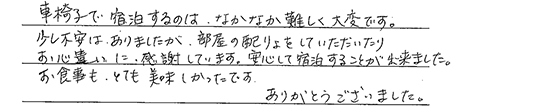 車椅子で宿泊するのは、なかなか難しく大変です。
少し不安は、ありましたが、部屋の配りょをしていただいたり
お心遣いに、感謝しています。安心して宿泊することが出来ました。
お食事も、とても美味しかったです。
ありがとうございました。